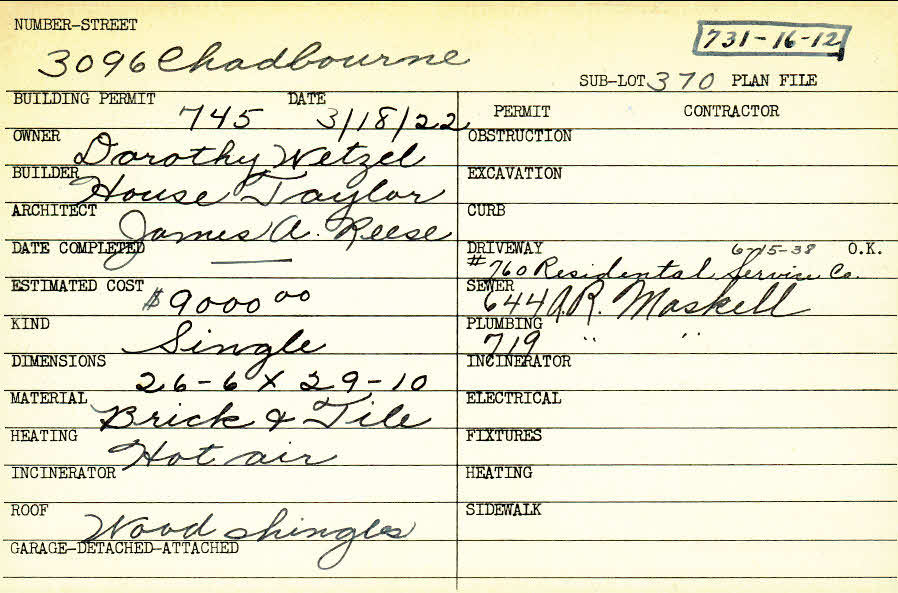 NUMBER-STREET
3096 Chadbourne
731-16-12
SUB-LOT 370 PLAN FILE
BUILDING PERMIT 745 DATE 3/18/22
OWNER Dorothy Wetzel
BUILDER House Taylor
ARCHITECT James A. Reese
DATE COMPLETED —
ESTIMATED COST $9000 00
KIND Single
DIMENSIONS 26-6 X 29-10
MATERIAL Brick & Tile
HEATING Hot air
INCINERATOR
ROOF Wood shingles
GARAGE-DETACHED-ATTACHED
PERMIT CONTRACTOR
OBSTRUCTION
EXCAVATION
CURB
DRIVEWAY 6-15-38 O.K.
#760 Residental Service Co.
SEWER 644 A.R. Maskell
PLUMBING 719 " "
INCINERATOR
ELECTRICAL
FIXTURES
HEATING
SIDEWALK